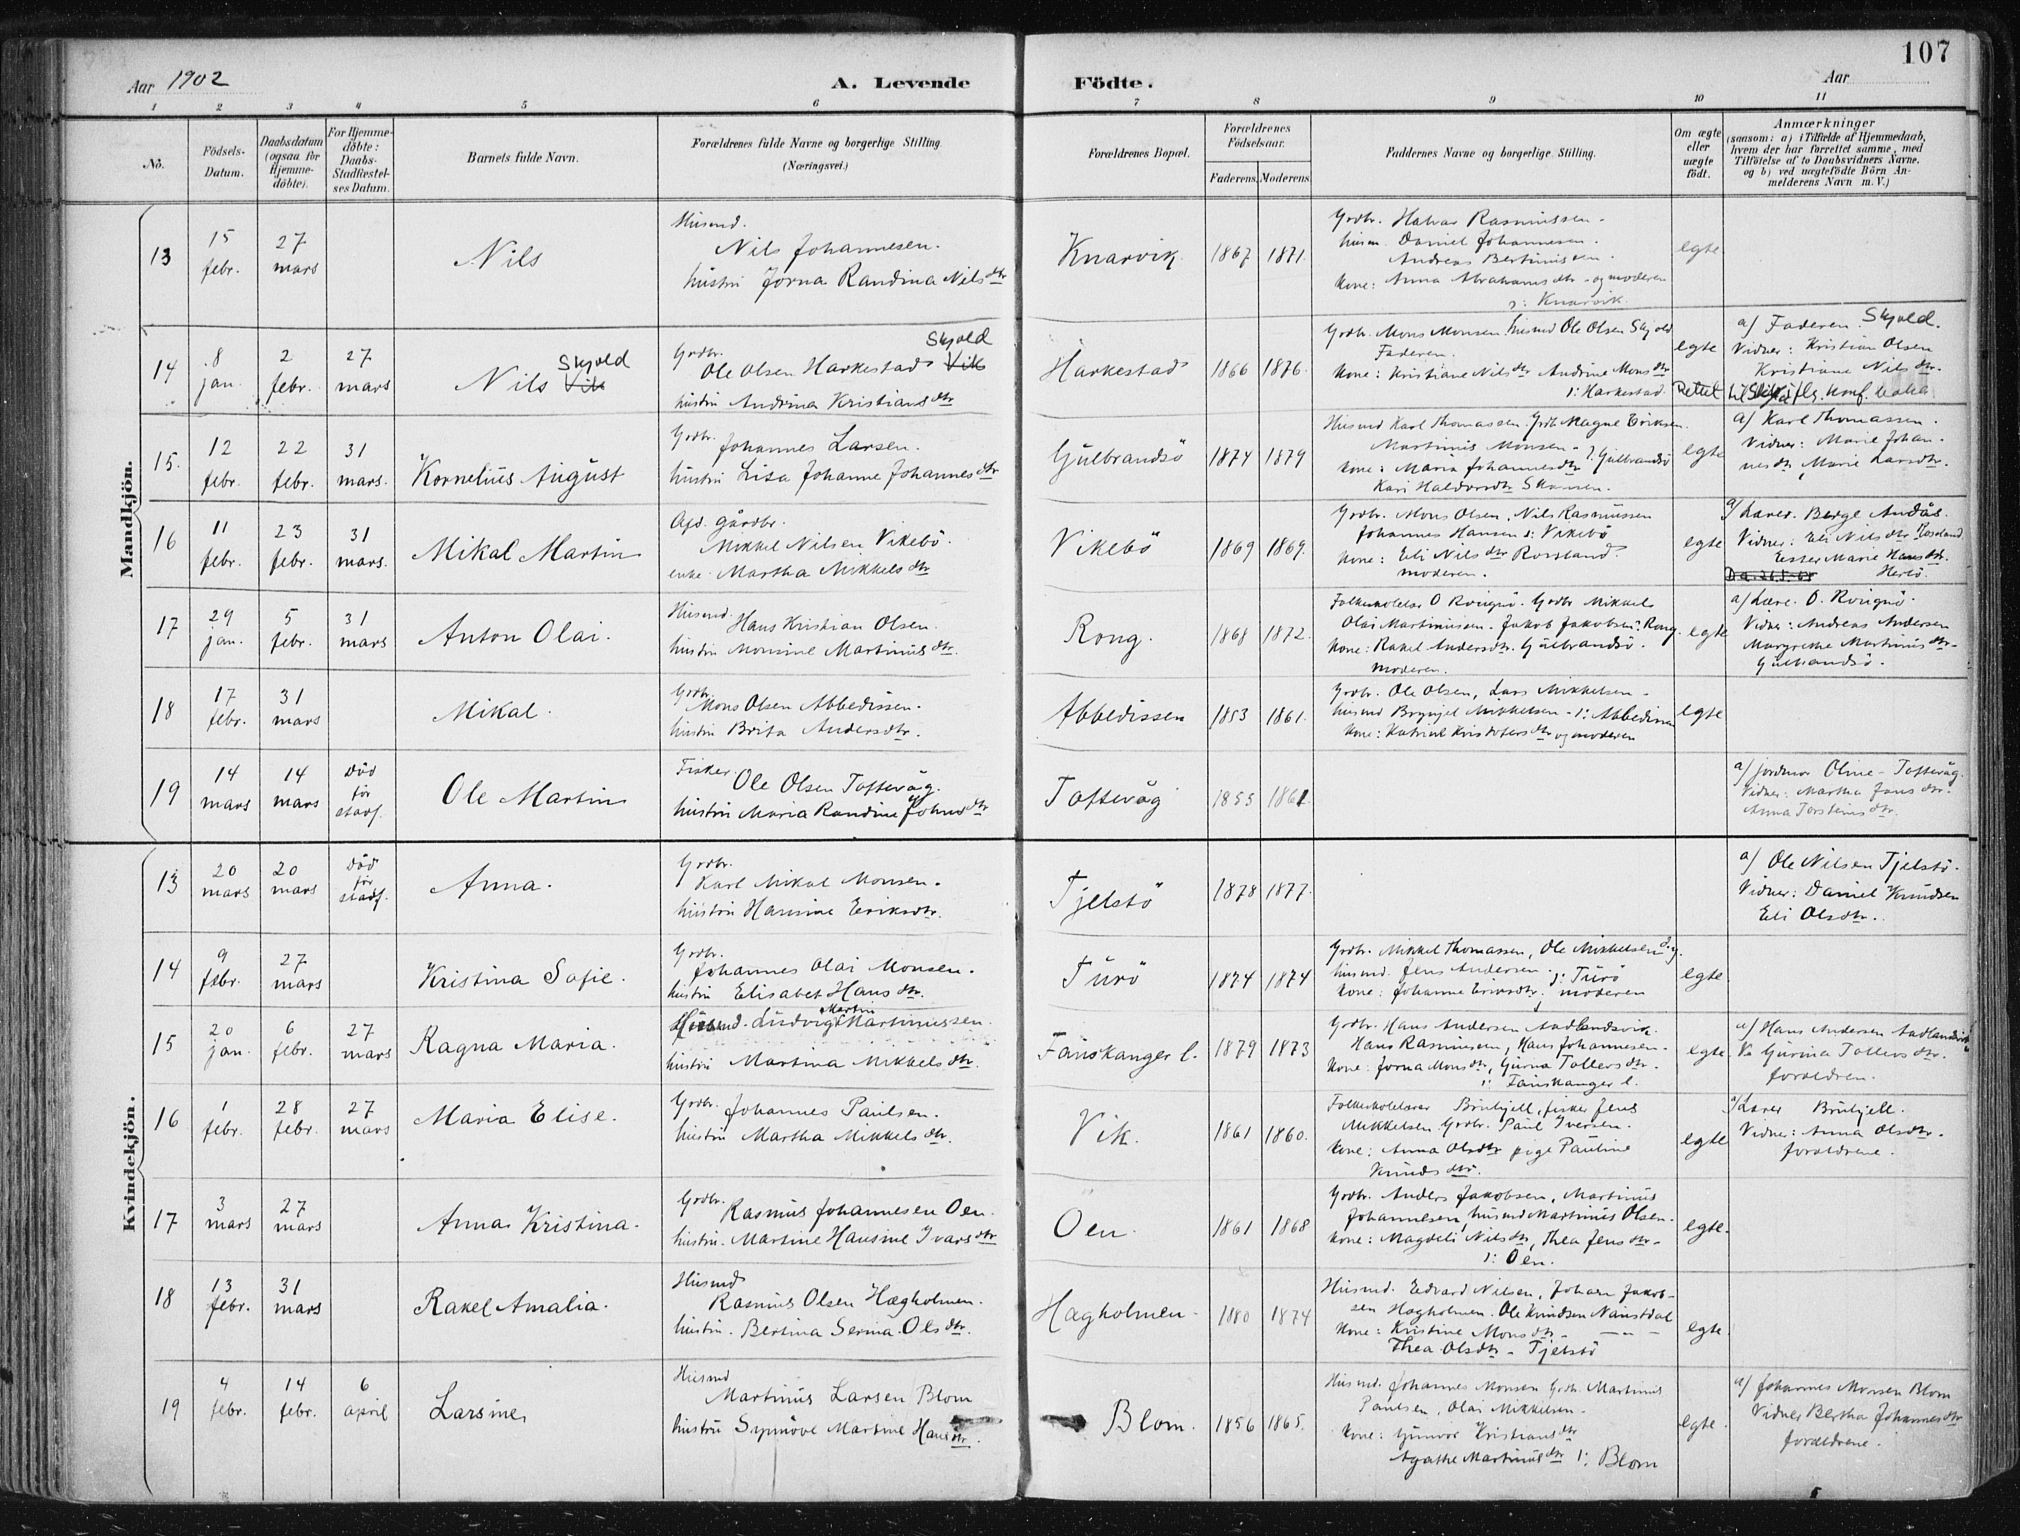 107
Aar 1902
A. Levende Födte.
Aar
1 2 3 4 5 6 7 8 9 10 11
No.
Födsels-Datum.
Daabsdatum (ogsaa for Hjemme-döbte).
For Hjemme-döbte: Daabs-Stadfæstel-ses Datum.
Barnets fulde Navn.
Forældrenes fulde Navne og borgerlige Stilling (Næringsvei.)
Forældrenes Bopæl.
Forældrenes Födselsaar.
Faderens. Moderens.
Faddernes Navne og borgerlige Stilling.
Om ægte eller uægte födt.
Anmærkninger
(saasom: a) i Tilfælde af Hjemmedaab,
hvem der har forrettet samme, med
Tilföielse af to Daabsvidners Navne,
og b) ved uægtefödte Börn An-
melderens Navn m. V.)
Mandkjön.
13
15 febr.
27 mars
Nils
Husmd.
Nils Johannesen.
hustru Jorna Randina Nilsdtr
Knarvik.
1867 1871.
Grdbr. Halvar Rasmussen -
husm. Daniel Johannesen.
Andreas Bertinussen
kone: Anna Abrahamsdtr - og moderen
ɔ: Knarvik.
egte
14
8 jan.
2 febr.
27 mars
Skjold
Nils Vik
Grdbr. Skjold
Ole Olsen Harkestad Vik
hustru Andrina Kristiansdtr
Harkestad
1866 1876.
Grdbr. Mons Monsen. husmd Ole Olsen Skjold
Faderen.
kone: Kristiane Nilsdtr Andrine Monsdtr
ɔ: Harkestad.
egte
a/ Faderen. Skjold.
Vidner: Kristian Olsen
Kristiane Nilsdtr.
Rettet til
15.
12 febr.
22 febr.
31 mars.
Kornelius August
Grdbr.
Johannes Larsen.
hustru Lisa Johanne Johannesdtr
Gulbrandsö
1874 1879
Husmd Karl Thomassen. Grdb. Magne Eriksen.
Martinus Monsen - ɔ: Gulbrandsö
kone: Maria Johannesdtr
Kari Haldorsdtr
egte
a/ Karl Thomassen.
Vidner: Marie Johan-
nesdtr, Marie Larsdtr.
16
11 febr.
23 febr.
31 mars.
Mikal Martin
gårdbr.
Mikkel Nilsen Vikebö.
enke. Martha Mikkelsdtr
Vikebö
1869 1869.
Grdbr. Mons Olsen, Nils Rasmussen
Johannes Hansen ɔ: Vikebö
kone: Eli Nilsdtr Rossland.
moderen.
egte
a/ Lærer. Berge Andås.
Vidner: Eli Nilsdtr Rossland
Ester Marie Hansdtr.
Herlö.
17
29 jan.
5 febr.
31 mars
Anton Olai.
Husmd.
Hans Kristian Olsen.
hustru Monsine Martinusdtr.
Rong.
1868 1872.
Folkeskolelær O Rongnö. Grdbr Mikkel
Olai Martinussen. Jakob Jakobsen ɔ: Rong.
kone: Rakel Andersdtr. Gulbrandsö.
moderen.
egte
a/ Lære. O. Rongnö.
Vidner: Andreas Andersen
Margrethe Martinusdtr-
Gulbrandsö.
18
17 febr.
31 mars
Mikal.
Grdbr.
Mons Olsen Abbedissen.
hustru Brita Andersdtr.
Abbedissen
1853 1861.
Grdbr. Ole Olsen, Lars Mikkelsen -
husmd Brynjel Mikkelsen - ɔ: Abbedissen
kone: Katrine Kristofersdtr og moderen
egte
19
14 mars
14 mars
död för stadf.
Ole Martin
Fisker
Ole Olsen Toftevåg.
hustru Maria Randine Johnsdtr
Toftevåg
1855 1861
a/ jordmor Oline - Toftevåg.
Vidner: Martha Jansdtr.
Anna Torsteinsdtr.
Kvindekjön.
13
20 mars
20 mars
död för stadf.
Anna.
Grdbr.
Karl Mikal Monsen.
hustru Hansine Eriksdtr.
Tjelstö
1878 1877.
a/ Ole Nilsen Tjelstö.
Vidner: Daniel Knudsen
Eli Olsdtr.
14
9 febr.
27 mars
Kristina Sofie.
Grdbr.
Johannes Olai Monsen.
hustru Elisabet Hansdtr.
Turö
1874 1874
Grdbr. Mikkel Thomassen, Ole Mikkelsen
husmd. Jens Andersen. ɔ: Turö
kone: Johanne Eriksdtr, moderen
egte.
15
20 jan.
6 febr.
27 mars
Ragna Maria.
Martin
Husmd. Ludvig Martinussen.
hustru Martina Mikkelsdtr.
Fauskanger l.
1879 1873
Grdbr. Hans Andersen Aadlandsvik.
Hans Rasmussen, Hans Johannesen.
kone: Jorna Monsdtr, Gurina Tollevsdtr.
ɔ: Fauskanger l.
egte.
a/ Hans Andersen Aadlandsvik
Gurina Tollevsdtr.
foreldren.
16
1 febr.
28 febr.
27 mars
Maria Elise.
Grdbr.
Johannes Paulsen.
hustru Martha Mikkelsdtr.
Vik.
1861 1860.
Folkeskolelærer Brukjell, fisker Jens
Mikkelsen. Grdbr. Paul Iversen.
kone: Anna Olsdtr pige Pauline
Knudsdtr.
egte
a/ Lærer Brukjell.
Vidner: Anna Olsdtr.
foreldrene.
17
3 mars
27 mars
Anna Kristina.
Grdbr.
Rasmus Johannesen Oen.
hustru. Martine Hansine Ivarsdtr
Oen
1861 1868
Grdbr. Anders Jakobsen, Martinus
Johannesen, husmd Martinus Olsen.
kone: Magdeli Nilsdtr, Thea Jensdtr-
ɔ: Oen.
egte.
18
13 febr.
31 mars
Rakel Amalia.
Husmd
Rasmus Olsen Hægholmen.
hustru. Bertina Serina Olsdtr.
Hægholmen.
1880 1874
Husmd. Edvard Nilsen, Johan Jakob-
sen Hægholmen. Ole Knudsen Naustdal
kone: Kristine Monsdtr - - " -
Thea Olsdtr - Tjelstö
egte.
19
4 febr.
14 febr.
6 april
Larsine
Husmd
Martinus Larsen Blom
hustru Synnöve Martine Hansdtr.
Blom.
1856 1865.
Husmd. Johannes Monsen Grdb. Martinus
Paulsen, Olai Mikkelsen.
kone: Gunvor Kristiansdtr
Agathe Martinusdtr ɔ: Blom
egte.
a/ Johannes Monsen Blom
Vidner Bertha Johannesdtr
foreldrene.